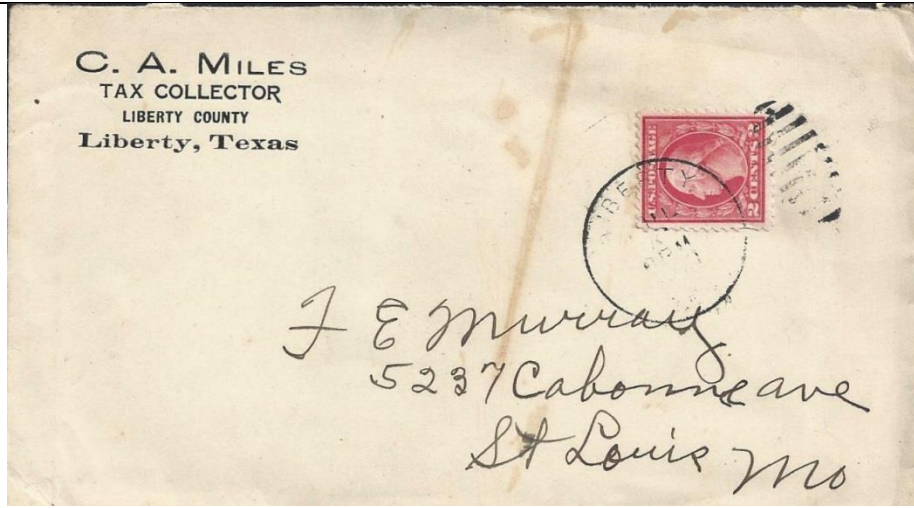 C. A. MILES
TAX COLLECTOR
LIBERTY COUNTY
Liberty, Texas
U.S. POSTAGE
2 CENTS 2
LIBERTY
F E Murray
5237 Cabanne ave
St Louis Mo